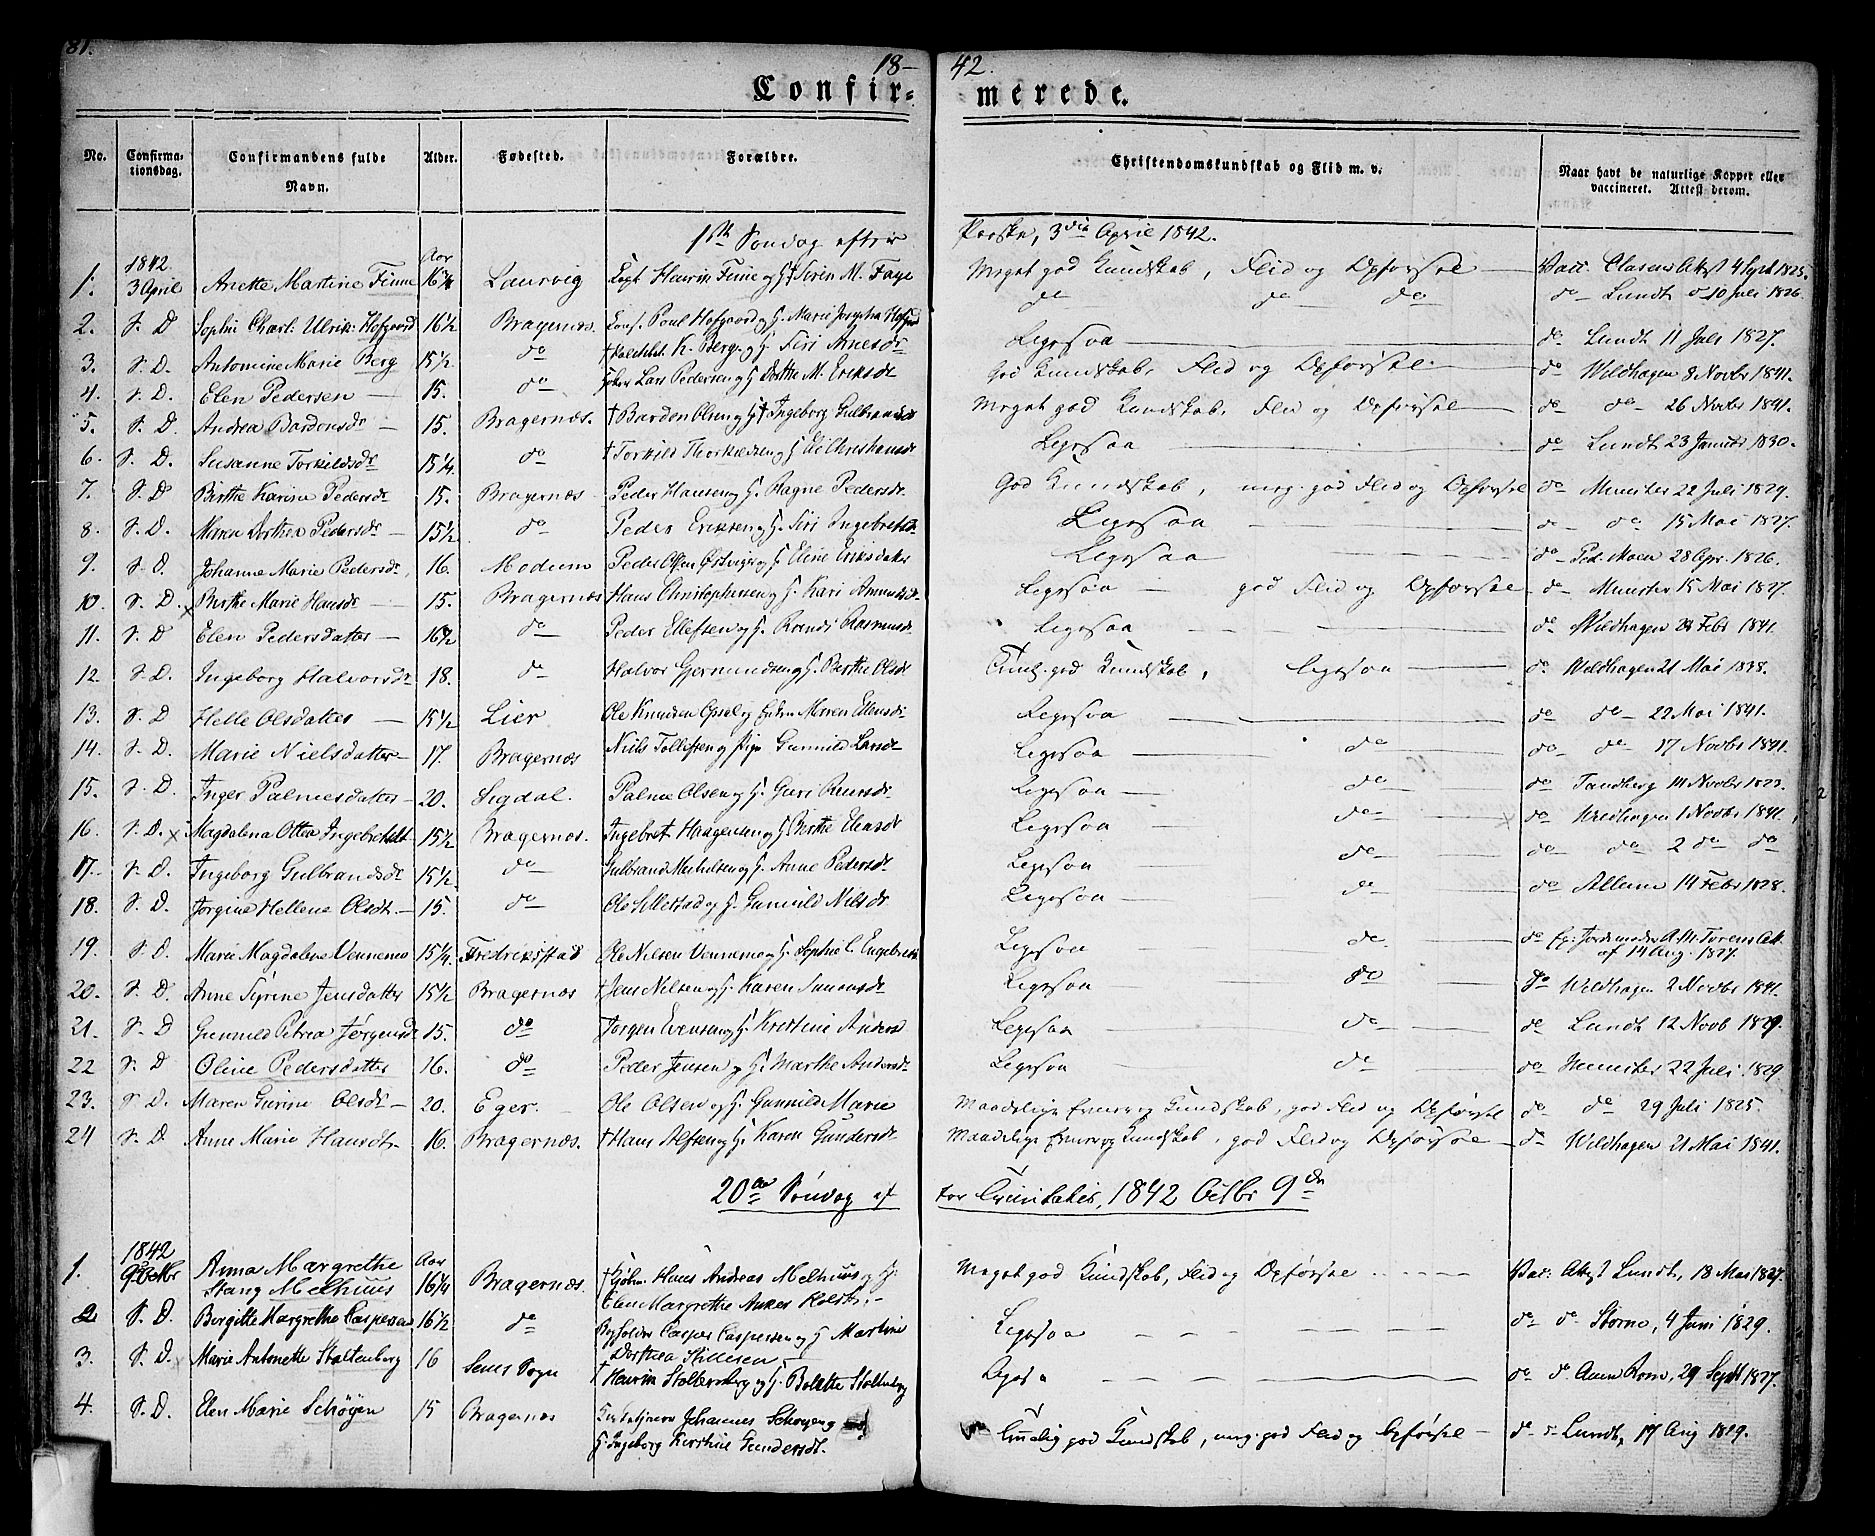 81.
18— 42.
Confir- merede.
No. Confirma-tionsdag. Confirmandens fulde Navn. Alder. Fødested. Forældre. Christendomskundskab og Flid m. v. Naar havt de naturlige Kopper eller vaccineret. Attest derom.
1ste Søndag efter Paaske, 3die April 1842.
1. 1842 3 April Anette Martine Finne Aar 16 1/4 Laurvig Capt Henrik Finne og H. Siren M. Faye Meget god Kundskab, Flid og Opførsel — Vacc. Clasens Attest 4 Sept 1825.
2. S. D Sophie Charl. Ulrik. Hofgaard 16 1/2 Bragernæs. Cons. Poul Hofgaard og H. Marie Josepha do do do do Lundt d 10 Juli 1826.
3. S. D. Antomine Marie Berg 15 1/2 do K. Berg og H. Siri Arnesdr Ligesaa do Lundt 11 Juli 1827.
4. S. D. Elen Pedersen 15. do Lars Pedersen og H. Dorthe M. Eriksdr God Kundskab, Flid og Opførsel do Wildhagen 8 Novbr 1841.
5. S. D. Andrea Bardonsdr 15. Bragernæs. † Bardon Olsen og H † Ingeborg Gulbrandsdr Meget god Kundskab, Flid og Opførsel do do 26 Novbr 1841.
6. S. D. Susanne Torkildsdr 15 1/4. do † Torkild Thorkildsen og H. Christiansdr Ligesaa do Lundt 23 Januar 1830.
7. S. D Birthe Karine Pedersdr 15. Bragernæs Peder Hansen og H. Ragne Pedersdr God Kundskab, meg. god Flid og Opførsel do Munster 22 Juli 1829.
8. S. D. Maren Dorthea Pedersdr 15 1/2 do Peder Eriksen og H. Siri Ingebretsdr Ligesaa do do 15 Mai 1827.
9. S. D. Johanne Marie Pedersdr. 16. Modum Peder Olsen Østviger og H. Eline Eriksdatter Ligesaa do Ped. Moen 28 Apr. 1826.
10. S. D. Birthe Marie Hansdr 15. Bragernæs Hans Christophersen og H. Kari Amundsdr Ligesaa — god Flid og Opførsel do Munster 15 Mai 1827.
11. S. D Elen Pedersdatter 16 1/2 do Peder Ellefsen og H. Randi Rasmusdr Ligesaa do Wildhagen 22 Febr 1841.
12. S. D. Ingeborg Halvorsdr 18. do Halvor Gjermundsen og H. Birthe Olsdr Teml. god Kundskab, ligesaa do Wildhagen 21 Mai 1838.
13. S. D Helle Olsdatter 15 1/2 Lier Ole Knudsen Opsal og Maren Ellensdr Ligesaa do do 22 Mai 1841.
14. S. D. Marie Nielsdatter 17. Bragernæs Niels Tollefsen og Pige Gunnild Larsdr Ligesaa do do do 17 Novbr 1841.
15. S. D. Inger Palmesdatter 20. Sigdal. Palme Olsen og H. Guri Ligesaa do do Tandberg 14 Novbr 1823.
16. S. D. Magdalena Ottea Ingebretsdr 15 1/2 Bragernæs. Ingebret Haagensen og H. Birthe Ligesaa do do Wildhagen 1 Novbr 1841.
17. S. D. Ingeborg Gulbrandsdr 15 1/2. do Gulbrand Michelsen og H. Anne Pedersdr Ligesaa do do do 2 do do
18. S. D. Jorgine Hellene Olsdt. 15. do Ole Sillestad og H. Gunnild Nilsdr Ligesaa do do Allum 14 Febr 1828.
19. S. D. Marie Magdalene Vennemo 15 1/4. Fredrikstad Ole Nilsen Vennemo og H. Sophie C. Engebretsd Ligesaa do. do af 14 Aug. 1827.
20. S. D. Anne Sirine Jensdatter 15 1/2 Bragernæs † Jens Nilsen og H. Karen Simonsdr Ligesaa do do Wildhagen 2 Novbr 1841.
21. S. D Gunnild Petrea Jørgensdr 15. do Jørgen Evensen og H. Kristine Andersd Ligesaa do do Lundt 12 Novb 1829.
22 S. D Oline Pedersdatter 16. do Peder Jensen og H. Marthe Andersdr Ligesaa do do Munster 22 Juli 1829
23. S. D. Maren Gurine Olsdr 20. Eger. Ole Olsen og H. Gunnild Marie Maadelige Kundskab, god Flid og Opførsel do do 29 Juli 1825.
24 S. D. Anne Marie Hansdt. 16. Bragernæs. † Hans Alfsen og H. Karen Gundersdr Maadelige Kundskab, god Flid og Opførsel do Wildhagen 21 Mai 1841.
20de Søndag ef ter Trinitatis, 1842 Octbr 9de
1. 1842 9 Octbr Anna Margrethe Stang Melhuus Aar 16 1/4 Bragernæs. † Kjøbm. Hans Andreas Melhuus og H. Elen Margrethe Anker Holst. Meget god Kundskab, Flid og Opførsel Vac: Attest Lundt, 18 Mai 1827.
2. S. D. Bergitte Margrethe Caspersen 16 1/2 do Byfoged Casper Caspersen og H Martine Dorthea Stillesen Ligesaa do do Storm, 4 Juni 1829.
3. S. D. Marie Antonette Stoltenberg 16 Sems Sogn † Henrik Stoltenberg og H. Bolette Stoltenberg Ligesaa do do. 29 Septbr 1827.
4. S. D. Elen Marie Schøyen 15 Bragernæs Johannes Schøyen og H. Ingeborg Kirstine Gundersdt. Temmelig god Kundskab, meg. god Flid og Opførsel do Lundt, 17 Aug 1829.